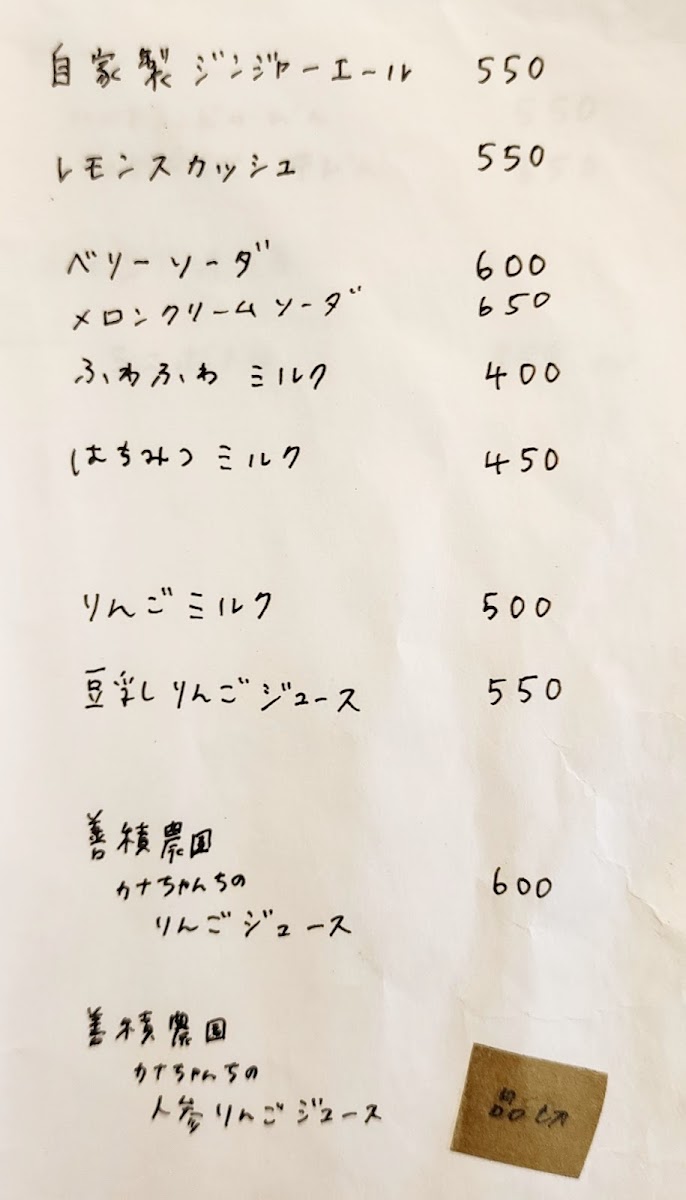 自家製 ジンジャーエール 550
レモンスカッシュ 550
ベリーソーダ 600
メロンクリームソーダ 650
ふわふわ ミルク 400
はちみつ ミルク 450
りんごミルク 500
豆乳りんごジュース 550
善積農園
カナちゃんちの 600
りんごジュース
善積農園
カナちゃんちの
人参りんごジュース